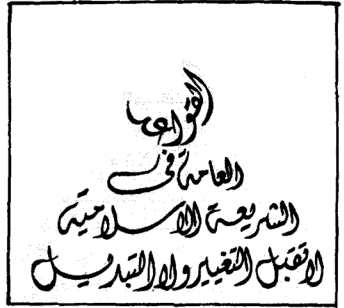 القواعد
العامة في
الشريعة الإسلامية
لا تقبل التغيير ولا التبديل